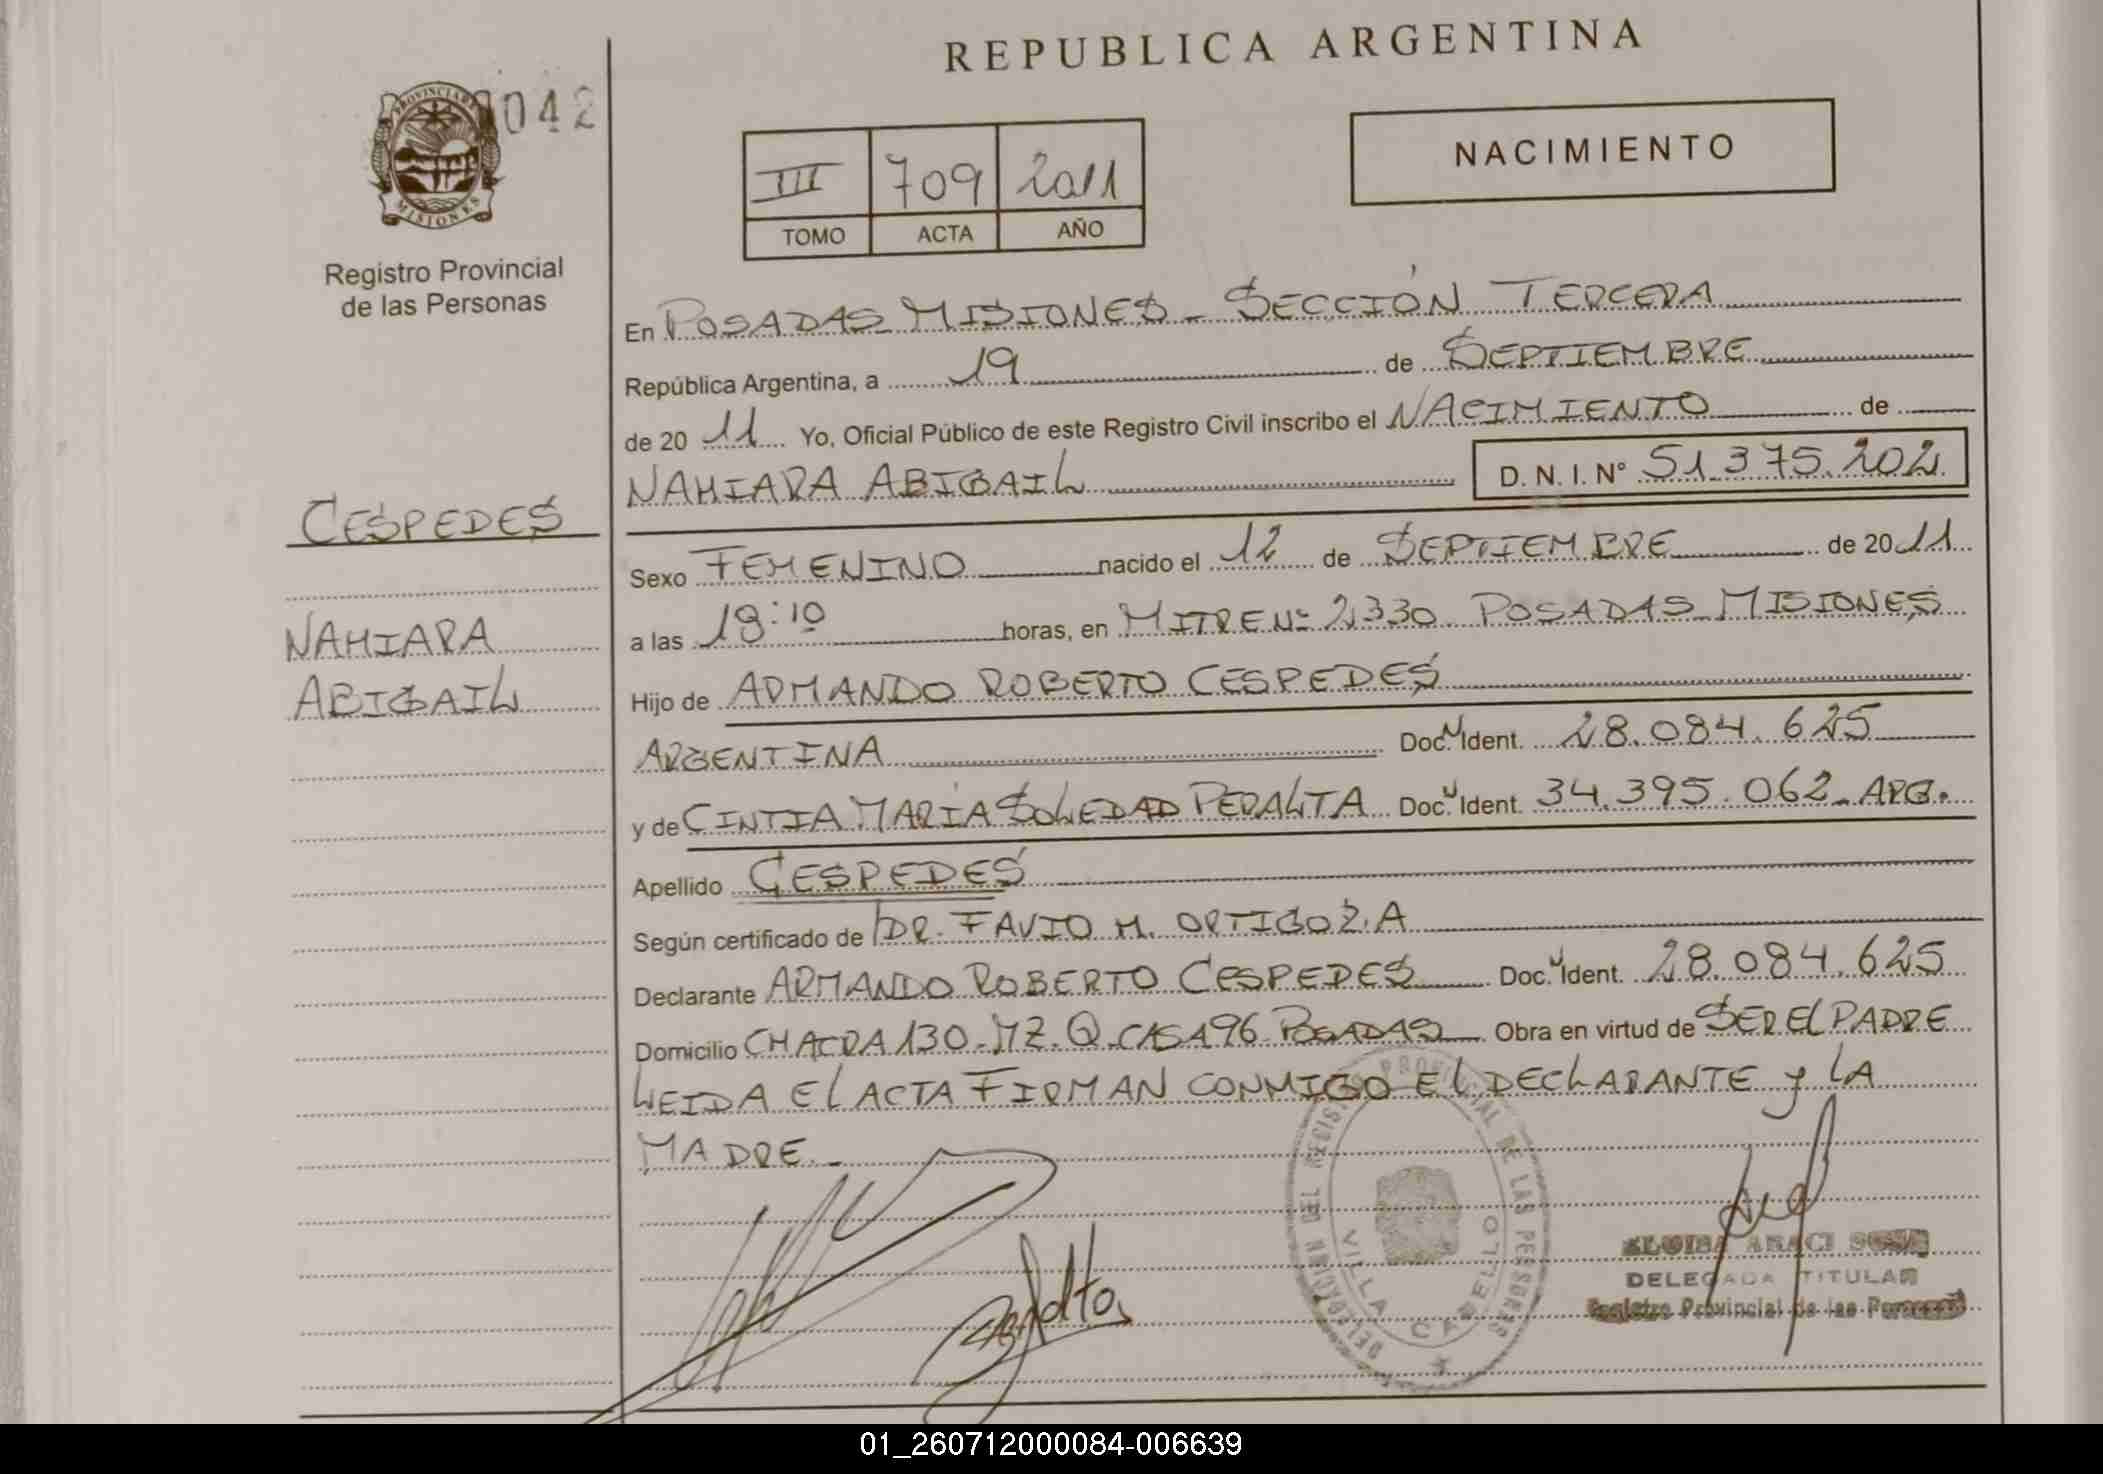 REPUBLICA ARGENTINA
042
PROVINCIA DE
MISIONES
Registro Provincial
de las Personas
III 709 2011
TOMO ACTA AÑO
NACIMIENTO
En POSADAS MISIONES - SECCIÓN TERCERA
República Argentina, a 19 de SEPTIEMBRE
de 20 11 Yo, Oficial Público de este Registro Civil inscribo el NACIMIENTO de
NAHIARA ABIGAIL D. N. I. N° 51.375.202
CESPEDES
NAHIARA
ABIGAIL
Sexo FEMENINO nacido el 12 de SEPTIEMBRE de 20 11
a las 19:10 horas, en MITRE Nº 2330 POSADAS MISIONES
Hijo de ARMANDO ROBERTO CESPEDES
ARGENTINA Doc. Ident. 28.084.625
y de CINTIA MARÍA SOLEDAD PERALTA Doc. Ident. 34.395.062 - ARG.
Apellido CESPEDES
Según certificado de DR. FAVIO M. ORTIGOZA
Declarante ARMANDO ROBERTO CESPEDES Doc. Ident. 28.084.625
Domicilio CHACRA 130 - MZ. Q - CASA 96 - POSADAS Obra en virtud de SER EL PADRE
LEIDA EL ACTA FIRMAN CONMIGO EL DECLARANTE y LA
MADRE.-
DELEGACION DEL REGISTRO PROVINCIAL DE LAS PERSONAS
VILLA CABELLO
ARACI
DELEGADA TITULAR
Registro Provincial de las Personas
01_260712000084-006639